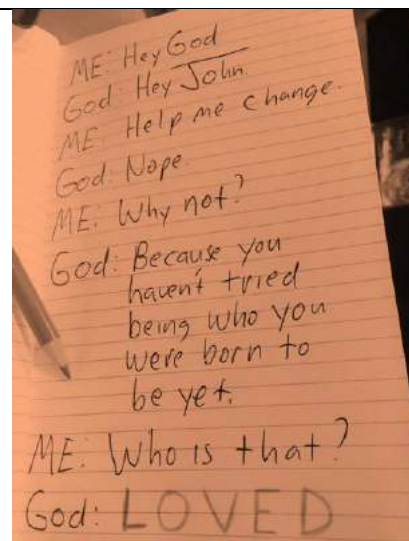 ME: Hey God
God: Hey John.
ME: Help me change.
God: Nope.
ME: Why not?
God: Because you
haven't tried
being who you
were born to
be yet.
ME: Who is that?
God: LOVED